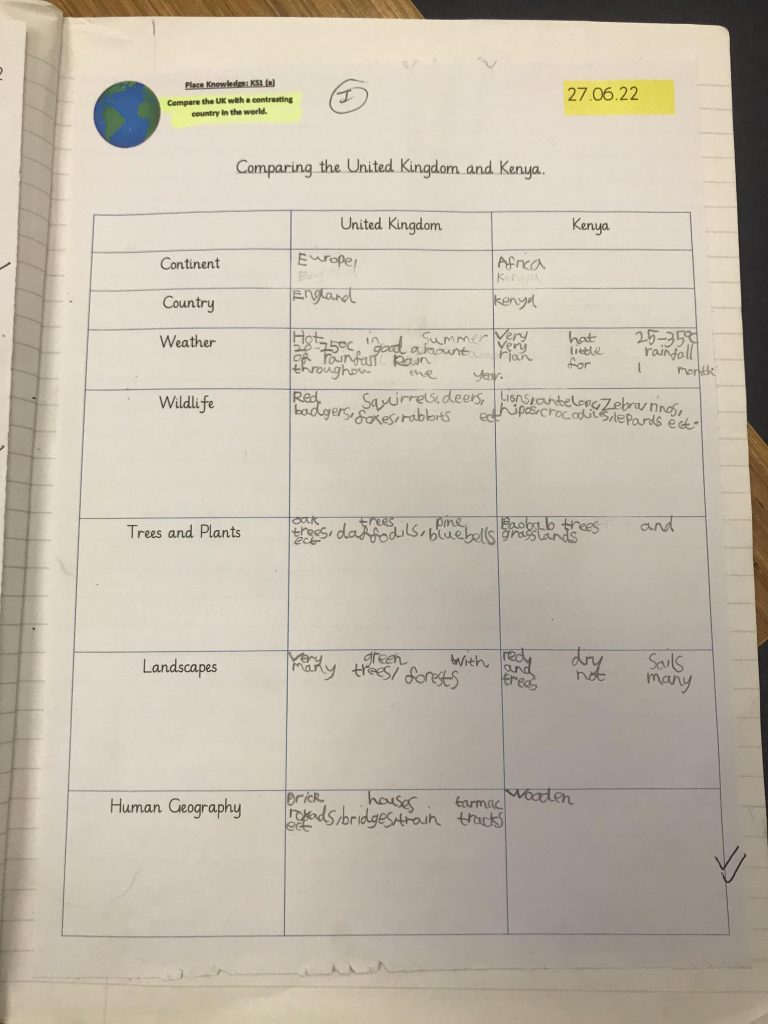 Place Knowledge: KS1 (a)
Compare the UK with a contrasting
country in the world.
I
27.06.22
Comparing the United Kingdom and Kenya.
United Kingdom Kenya
Continent Europe, Africa
Kenya
Country England Kenya
Weather
Hot in Summer
20-25°c good amount
of rainfall Rain
throughou the year.
Very hot 25-35°c
Very little rainfall
rian for 1 month
Wildlife
Red Squirrels, deers,
badgers, foxes, rabbits ect
Lions, antelope, Zebra, rinos,
hipos, crocodiles, lepards ect.
Trees and Plants
oak trees pine
trees, daffodils, bluebells
ect
Baobab trees and
grasslands
Landscapes
Very green with
many trees/ forests
redy dry Sails
and not many
treas
Human Geography
Brick houses tarmac
roads, bridges, train tracks
ect
Wooden